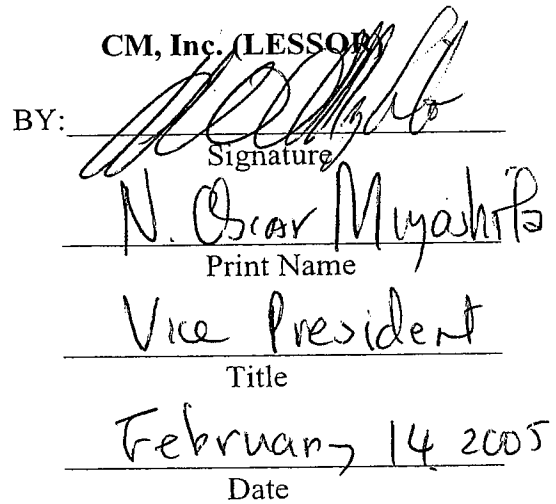 CM, Inc. (LESSOR)
BY:
Signature
N. Oscar Miyashita
Print Name
Vice President
Title
February 14 2005
Date